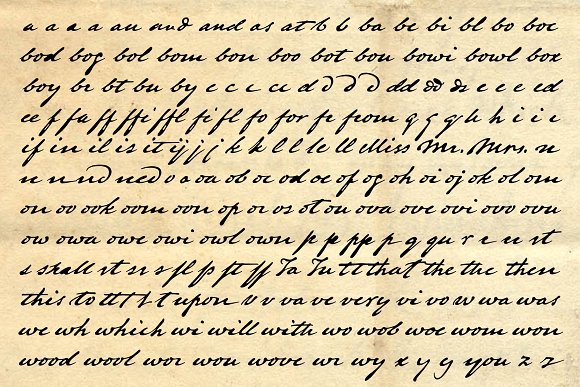 a a a a an and and as at b b ba be bi bl bo boc
bod bog bol bom bon boo bot bou bowi bowl box
boy br bt bu by c c c cc d d d d dd dd ds e e e ed
ee f fa ff ffi ffl fi fl fo for fr from g g g h h i i c
if in il is it ij j j k k l l le ll Miss Mr. Mrs. n
n n nd ned o a oa ob oc od oe of og oh oi oj ok ol om
on oo ook oom oon op or os ot ou ova ove ovi ovo ovu
ow owa owe owi owl own p p pp p q qu r r r rt
s shall st sr s fl p ft ff Ta Tu tt that the the then
this to tt t t upon v v va ve very vi vo w wa was
we wh which wi will with wo wob woe wom won
wood wool wor wou wove wr wy x y y you z z